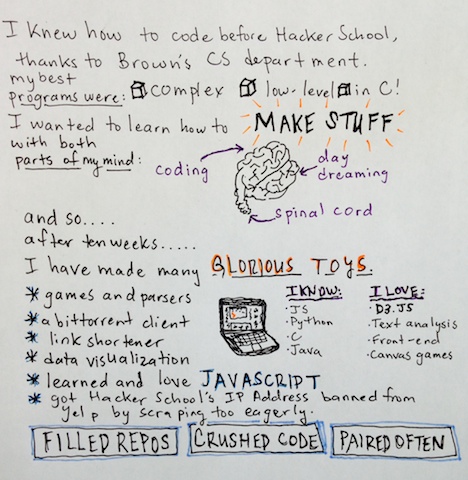 I knew how to code before Hacker School,
thanks to Brown's CS department.
my best
programs were: complex low-level in C!
I wanted to learn how to MAKE STUFF
with both
parts of my mind:
coding
day
dreaming
spinal cord
and so....
after ten weeks.....
I have made many GLORIOUS TOYS.
* games and parsers
* a bittorrent client
* link shortener
* data visualization
* learned and love JAVASCRIPT
* got Hacker School's IP Address banned from
Yelp by scraping too eagerly.
I KNOW:
· JS
· Python
· C
· Java
I LOVE:
· D3.JS
· Text analysis
· Front-end
· Canvas games
FILLED REPOS CRUSHED CODE PAIRED OFTEN